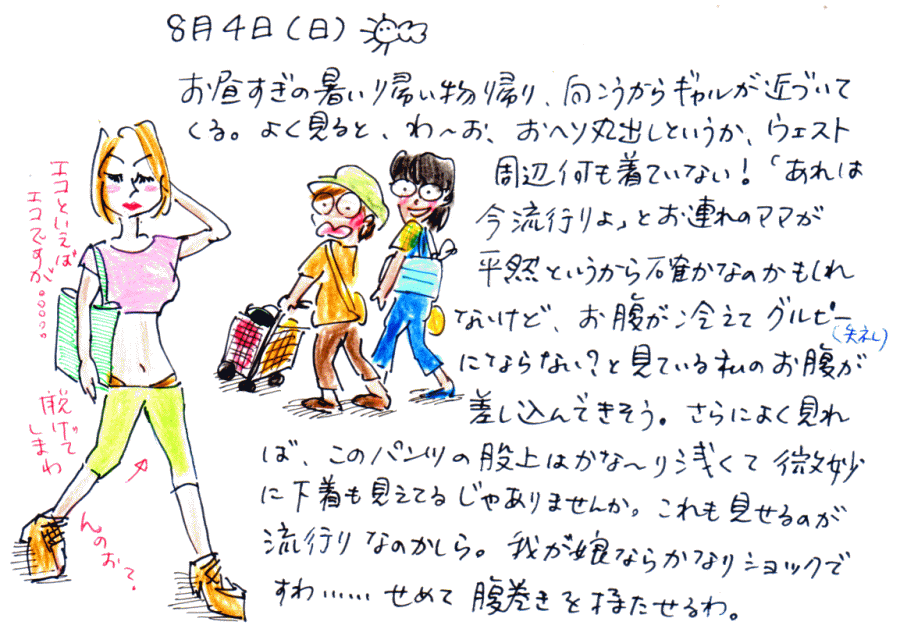 8月4日(日)
お昼すぎの暑い帰い物帰り、向こうからギャルが近づいて
くる。よく見ると、わ〜お、おヘソ丸出しというか、ウェスト
周辺何も着ていない!「あれは
今流行りよ」とお連れのママが
平然というから確かなのかもしれ
ないけど、お腹が冷えてグルピー
(失礼)
にならない?と見ている私のお腹が
差し込んできそう。さらによく見れ
ば、このパンツの股上はかな〜り浅くて微妙
に下着も見えてるじゃありませんか。これも見せるのが
流行りなのかしら。我が娘ならかなりショックで
すわ……せめて腹巻きを持たせるわ。
エコといえば
エコですが。。。。。
脱げて
しまわ
んのおて?